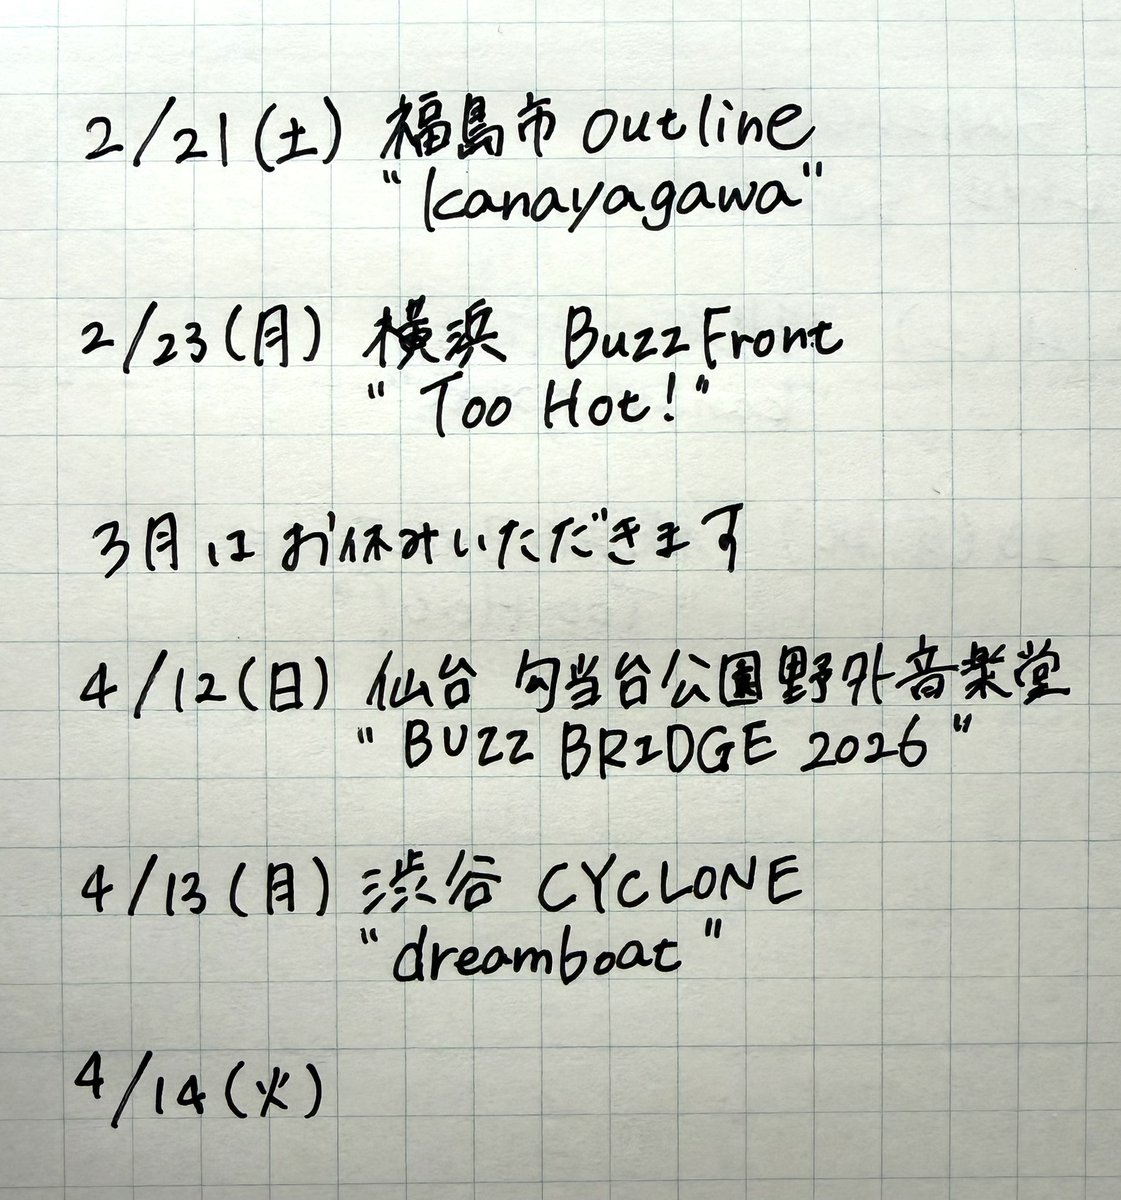 2/21(土) 福島市 outline
"kanayagawa"
2/23(月) 横浜 Buzz Front
"Too Hot!"
3月はお休みいただきます
4/12(日) 仙台 勾当台公園野外音楽堂
"BUZZ BRIDGE 2026"
4/13(月) 渋谷 CYCLONE
"dreamboat"
4/14(火)